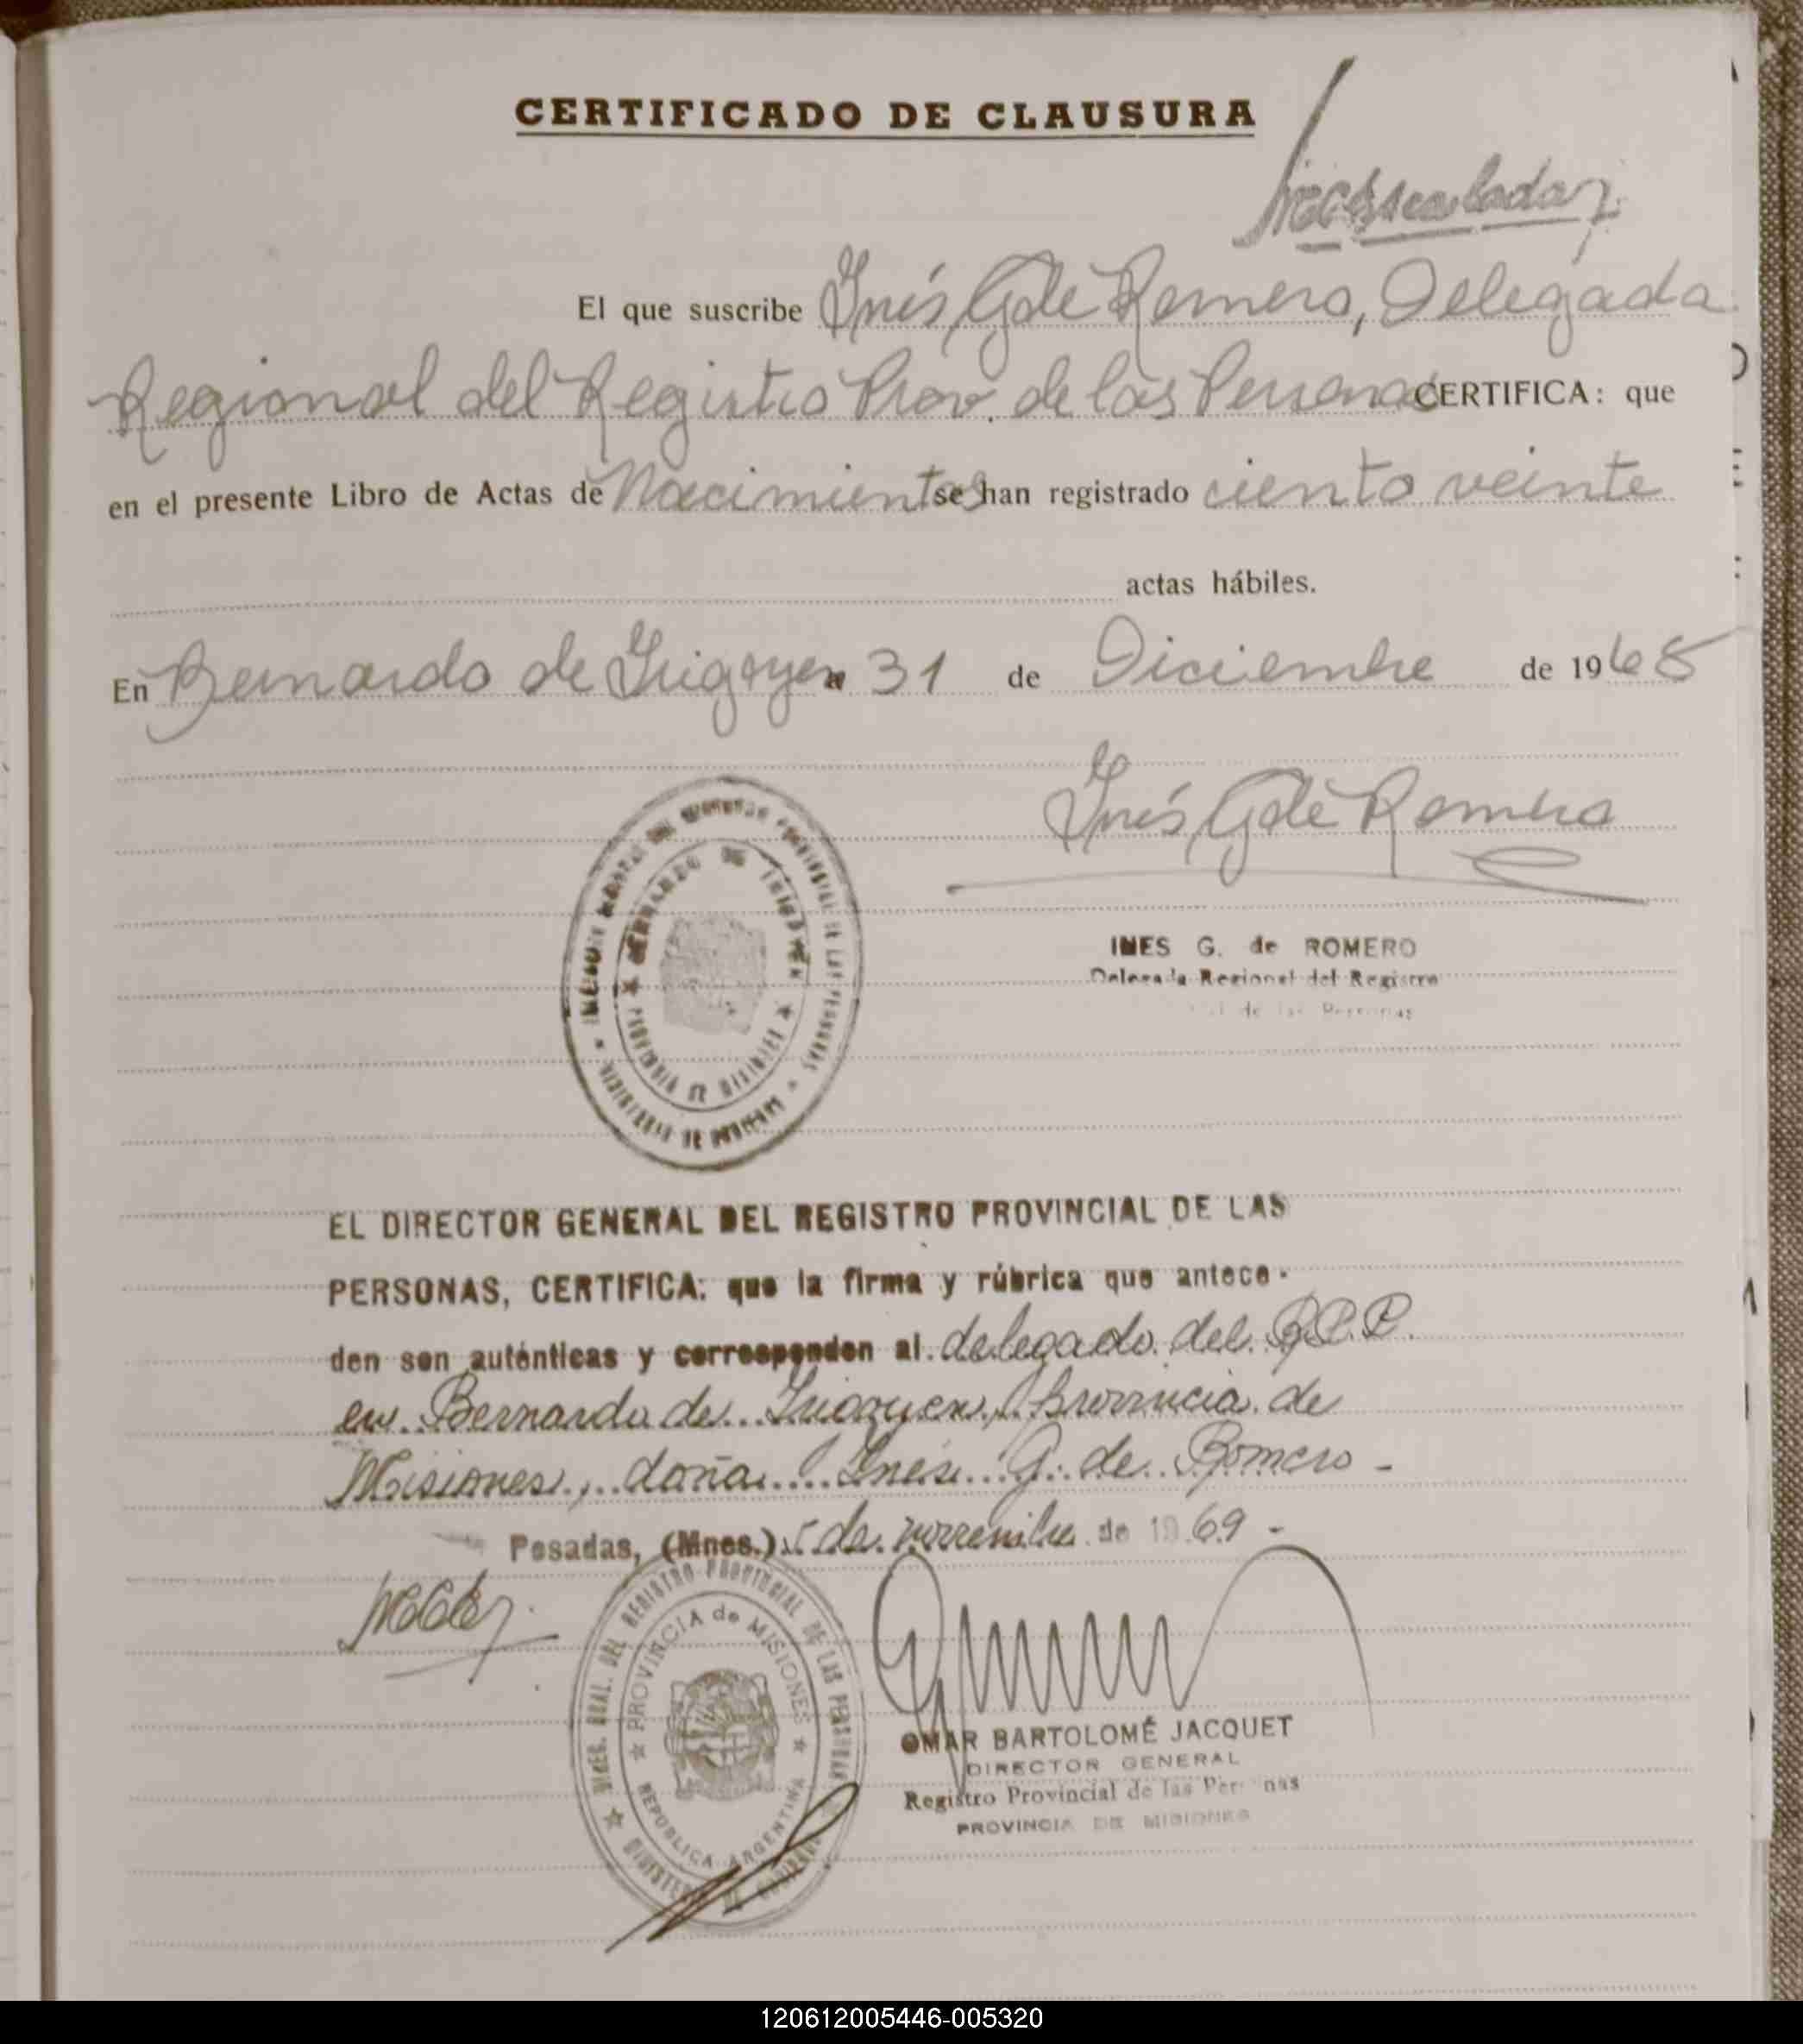 CERTIFICADO DE CLAUSURA
El que suscribe Inés G de Romero, Delegada
Regional del Registro Prov. de las Personas CERTIFICA: que
en el presente Libro de Actas de Nacimientos se han registrado ciento veinte
actas hábiles.
En Bernardo de Irigoyen a 31 de Diciembre de 1968
Inés G de Romero
INES G. de ROMERO
Delegada Regional del Registro
de las Personas
BERNARDO DE IRIGOYEN
PROVINCIA DE MISIONES
EL DIRECTOR GENERAL DEL REGISTRO PROVINCIAL DE LAS
PERSONAS, CERTIFICA: que la firma y rúbrica que antece-
den son auténticas y corresponden al delegado del R.P.P.
en Bernardo de Irigoyen, Provincia de
Misiones, doña Inés G. de Romero -
Posadas, (Mnes.) 5 de noviembre de 1969 -
DIREC. GRAL. DEL REGISTRO PROVINCIAL DE LAS PERSONAS
PROVINCIA de MISIONES
REPUBLICA ARGENTINA
MINISTERIO DE GOBIERNO
OMAR BARTOLOMÉ JACQUET
DIRECTOR GENERAL
Registro Provincial de las Personas
PROVINCIA DE MISIONES
120612005446-005320